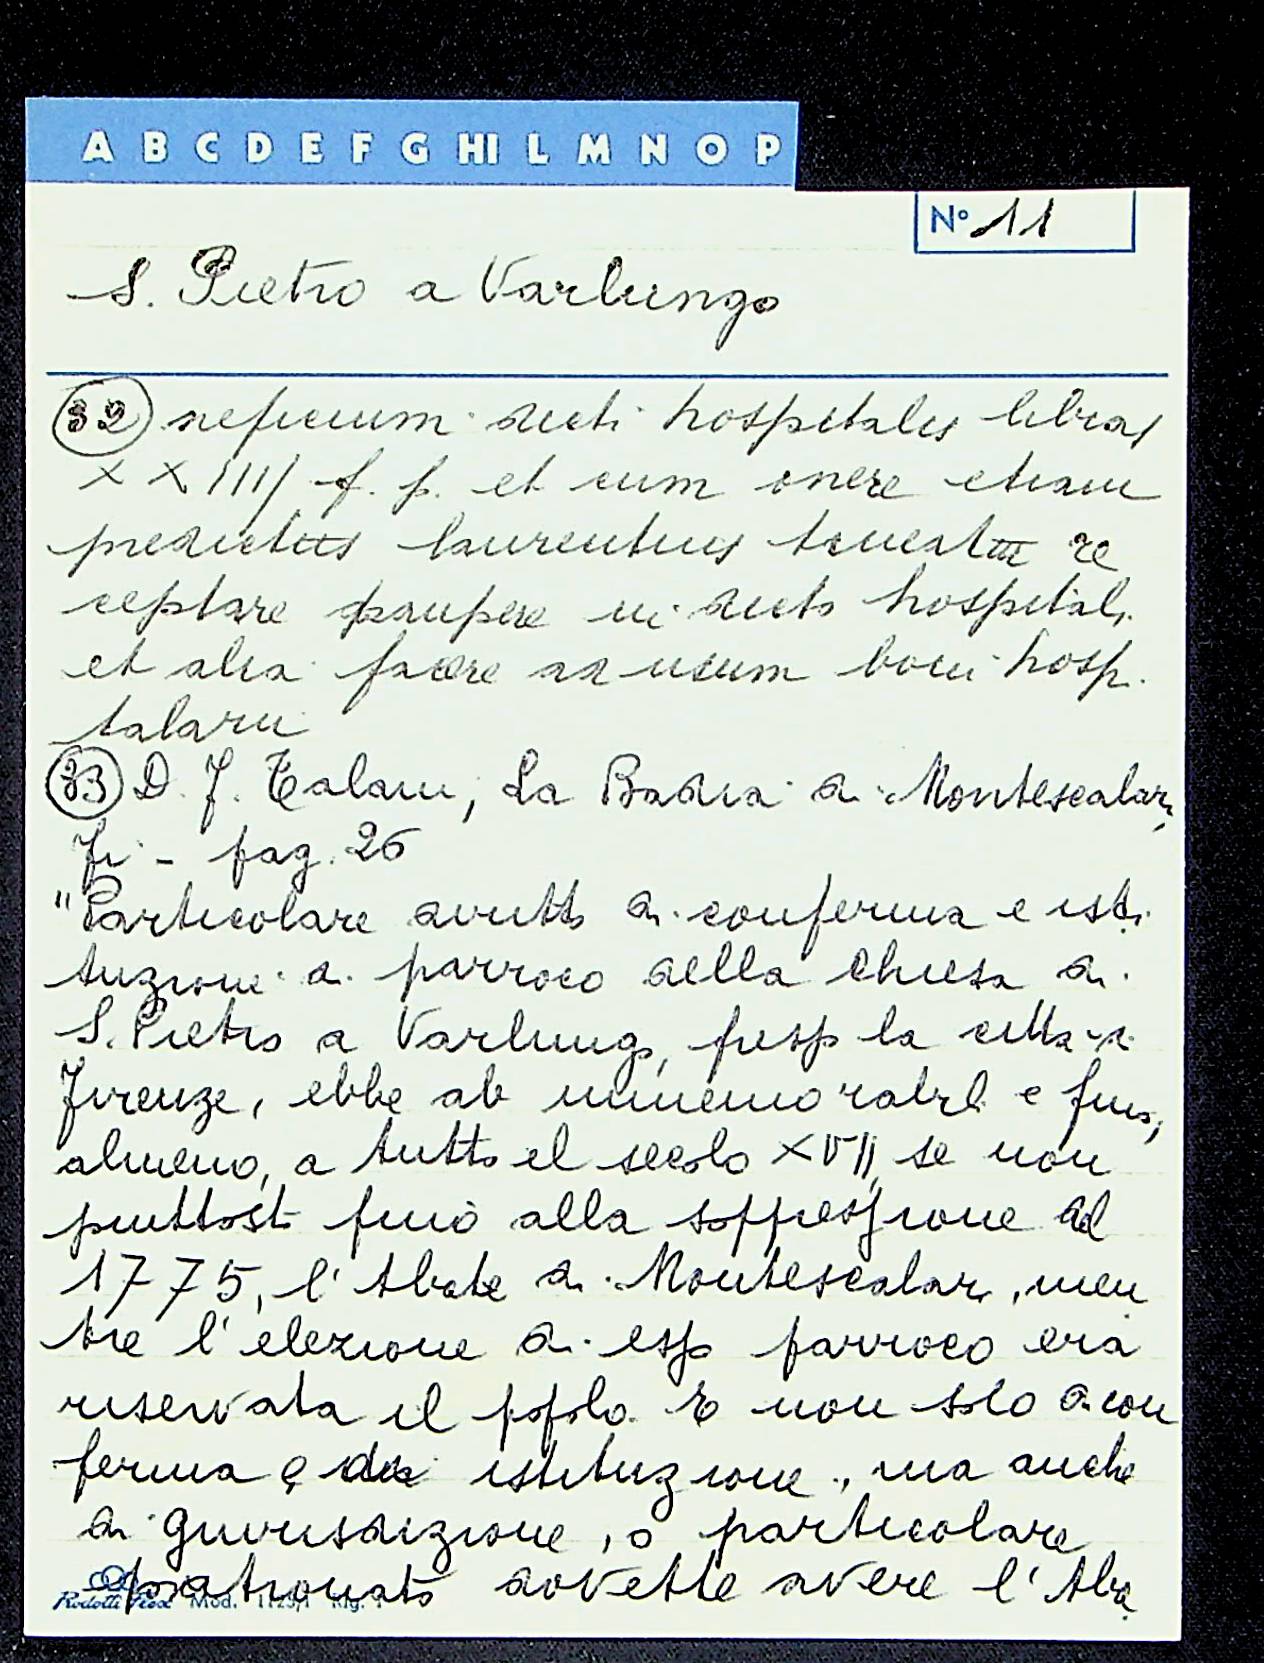 A B C D E F G HI L M N O P
N° 11
S. Pietro a Varlungo
32 neficium dicti hospitales libras
XXIIII f. p. et cum onere etiam
predictus laurentius teneatur re
ceptare paupere in dicto hospitali
et alia facere ad usum boni hospi
talarii
33 D. F. Talani, La Badia di Montescalari,
Fi - pag. 26
"Particolare diritto di conferma e isti
tuzione di parroco della Chiesa di
S. Pietro a Varlungo, presso la città di
Firenze, ebbe ab immemorabili e fino,
almeno, a tutto il secolo XVII, se non
piuttosto fino alla soppressione del
1775, l'Abate di Montescalari, men
tre l'elezione di esso parroco era
riservata il popolo. E non solo di con
ferma e di istituzione, ma anche
di giurisdizione, o particolare
patronato dovette avere l'Aba
Mod.